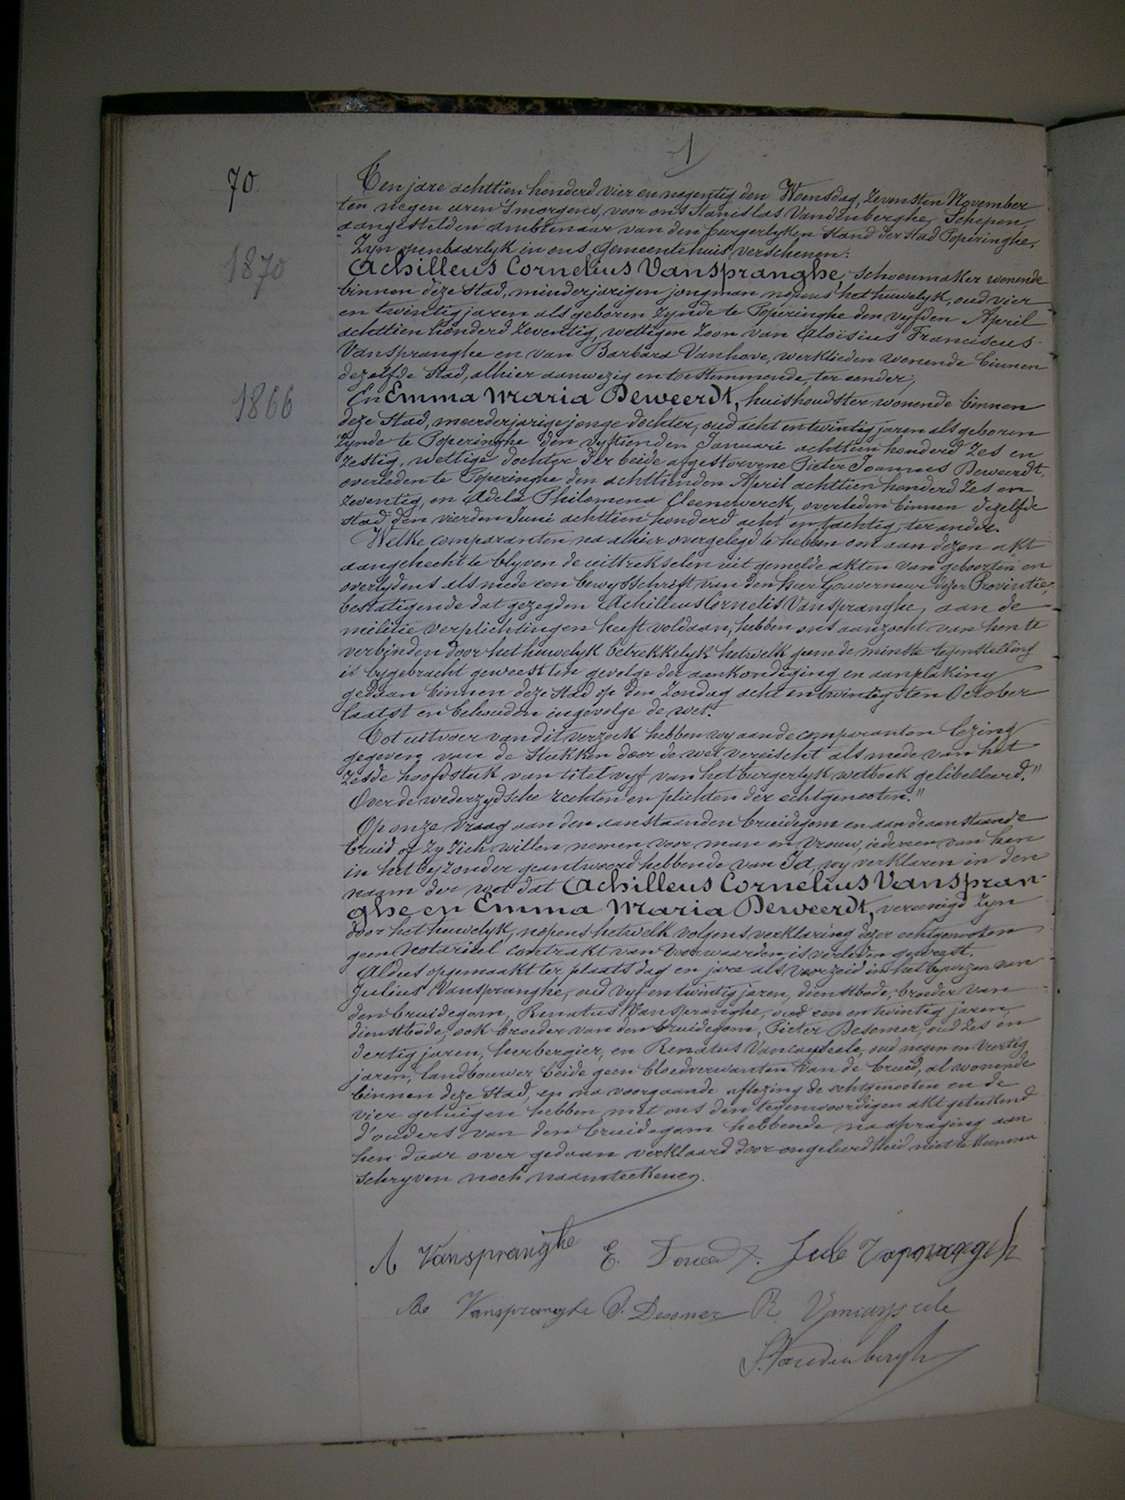 1
70
Ten jare achttien honderd vier en negentig den Woensdag, Zevensten November
ten negen uren s'morgens, voor ons Stanislas Vandenberghe, Schepen,
aangestelden ambtenaar van den burgerlyken stand der stad Poperinghe,
Zyn openbaarlyk in ons Gemeentehuis verschenen:
1870
Achilleus Cornelius Vanspranghe, schoenmaker wonende
binnen deze stad, minderjarigen jongman nopens het huwelyk, oud vier
en twintig jaren als geboren zynde te Poperinghe den vyfden April
achttien honderd zeventig, wettigen zoon van Aloïsius Franciscus
Vanspranghe en van Barbara Vanhove, werklieden wonende binnen
dezelfde stad, alhier aanwezig en toestemmende, ter eender,
1866
En Emma Maria Deweerdt, huishoudster wonende binnen
deze Stad, meerderjarige jonge dochter, oud acht en twintig jaren als geboren
zynde te Poperinghe den vyftienden Januari achttien honderd zes en
zestig, wettige dochter der beide afgestorvene Pieter Joannes Deweerdt
overleden te Poperinghe den achttienden April achttien honderd zes en
zeventig, en Adela Philomena Cleenewerck, overleden binnen dezelfde
stad den vierden Juni achttien honderd acht en tachtig, ter ander.
Welke comparanten na alhier overgelegd te hebben om aan dezen akt
aangehecht te blyven de uittrekselen uit gemelde akten van geboorten en
overlydens als mede een bewysschrift van den heer Gouverneur dezer Provintie,
bestatigende dat gezegden Achilleus Cornelis Vanspranghe, aan de
militie verplichtingen heeft voldaan, hebben ons aanzocht van hen te
verbinden door het huwelyk betrekkelyk hetwelk geen de minste tegenstelling
is bygebracht geweest ten gevolge der aankondiging en aanplaking
gedaan binnen deze stad op den Zondag acht en twintigsten October
laatst en behouden ingevolge de wet.
Tot uitvoer van dit verzoek hebben wy aan de comparanten lezing
gegeven van de Stukken door de wet vereischt als mede van het
zesde hoofdstuk van titel vyf van het burgerlyk wetboek gelibelleerd."
Over de wederzydsche rechten en plichten der echtgenooten."
Op onze vraag aan den aanstaanden bruidegom en aan de aanstaande
bruid of zy zich willen nemen voor man en vrouw, iedereen van hen
in het byzonder geantwoord hebbende van Ja, wy verklaren in den
naam der wet dat Achilleus Cornelius Vanspran-
ghe en Emma Maria Deweerdt, vereenigd zyn
door het huwelyk, nopens hetwelk volgens verklaring dezer echtgenooten
geen notarieel contrakt van voorwaarden is verleden geweest.
Aldus opgemaakt ter plaats dag en jare als voorzeid in het bywezen van
Julius Vanspranghe, oud vyf en twintig jaren, dienstbode, broeder van
den bruidegom, Renatus Vanspranghe, oud een en twintig jaren,
dienstbode, ook broeder van den bruidegom, Pieter Desomer, oud zes en
dertig jaren, herbergier, en Renatus oud negen en veertig
jaren, landbouwer beide geen bloedverwanten van de bruid, al wonende
binnen deze Stad, en na voorgaande aflezing de echtgenooten en de
vier getuigen hebben met ons den tegenwoordigen akt geteekend
d'ouders van den bruidegom hebbende na afvraging aan
hen daar over gedaan verklaard door ongeleerdheid niet te kunnen
schryven noch naamteekenen.
A Vanspranghe E.
Re Vanspranghe P. Desomer R.
S. Vandenberghe